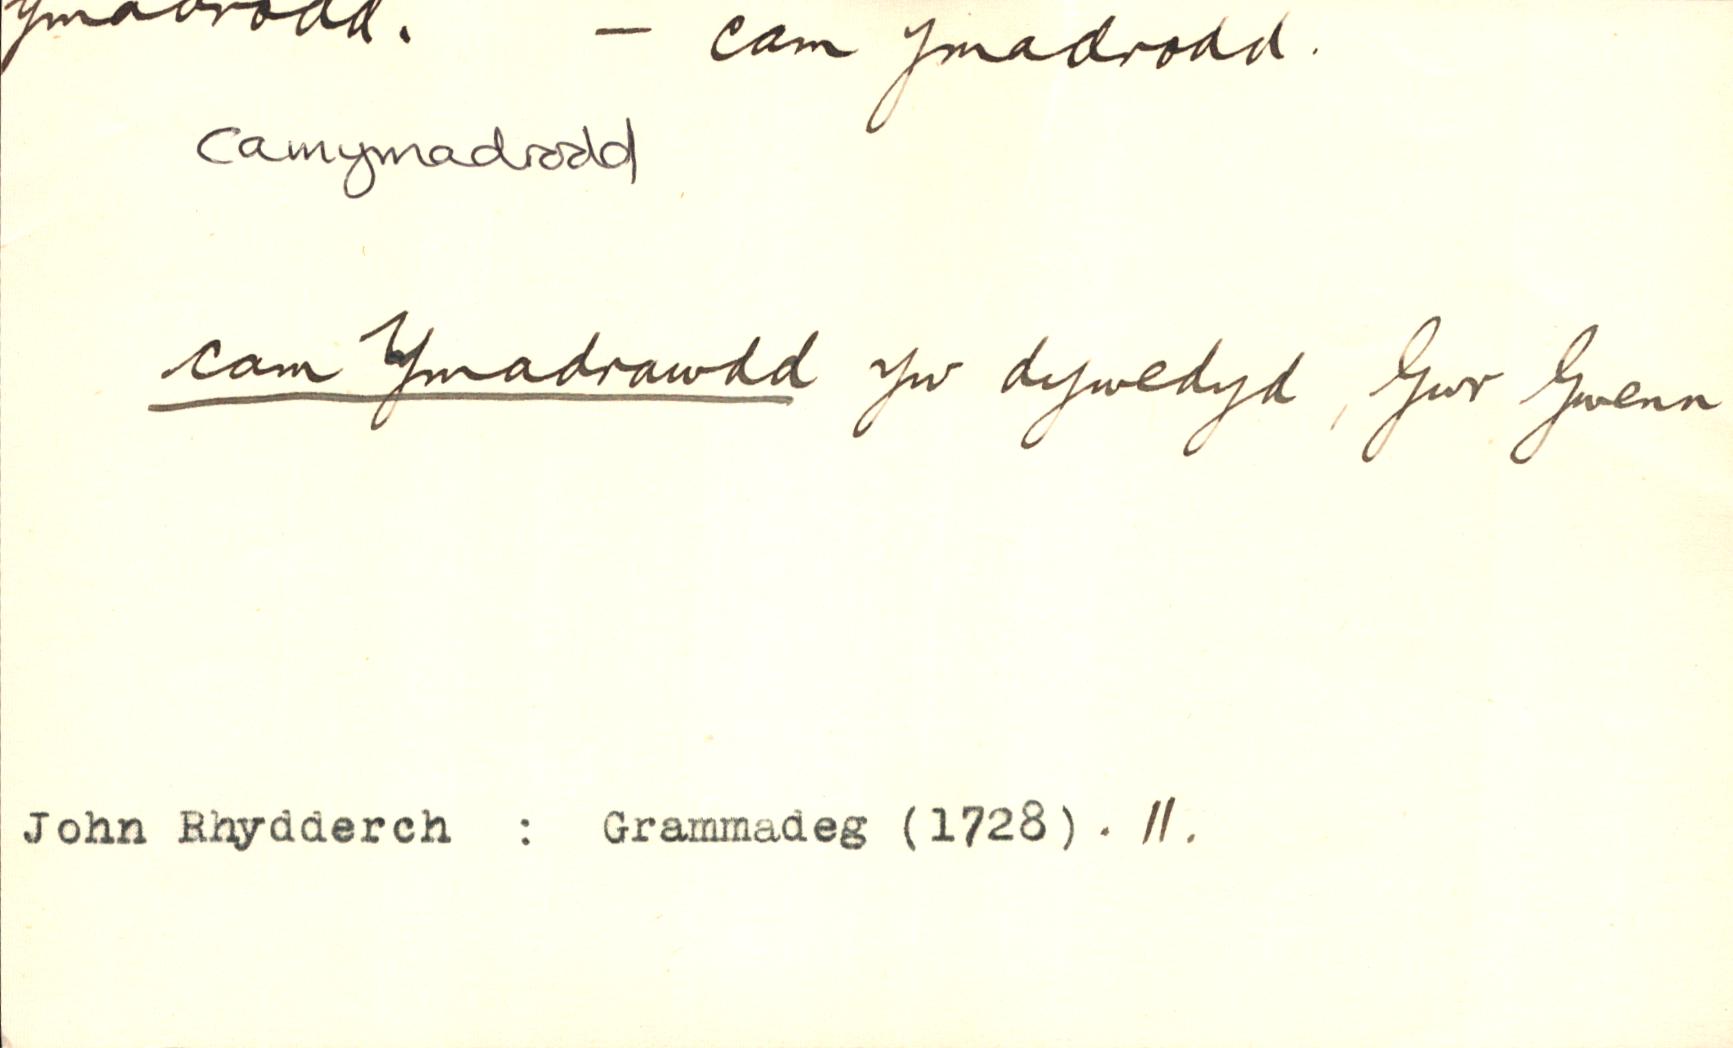 ymadrodd. — cam ymadrodd.
camymadrodd
cam Ymadrawdd yw dywedyd, Gwr Gwenn
John Rhydderch : Grammadeg (1728). 11.